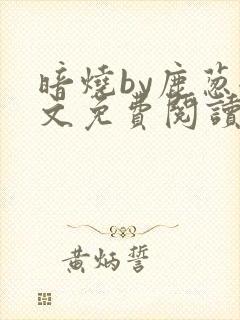 暗燒by鹿蔥
文免費閱讀
黃炳誓